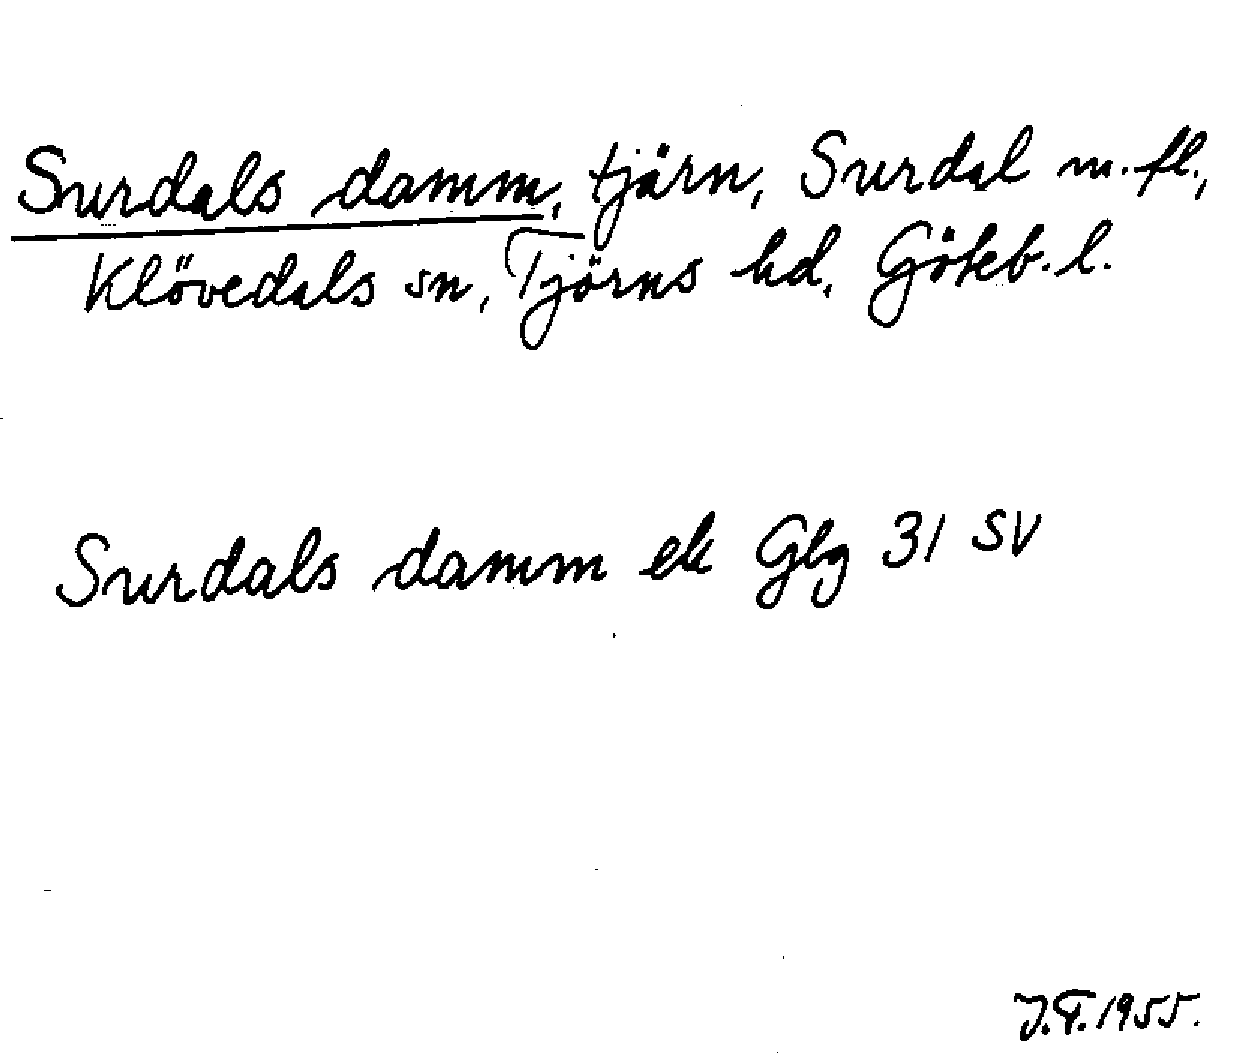 Surdals damm, tjärn, Surdal m.fl.,
Klövedals sn, Tjörns hd, Göteb. l.
Surdals damm ek Gbg 31 SV
J.F. 1955.